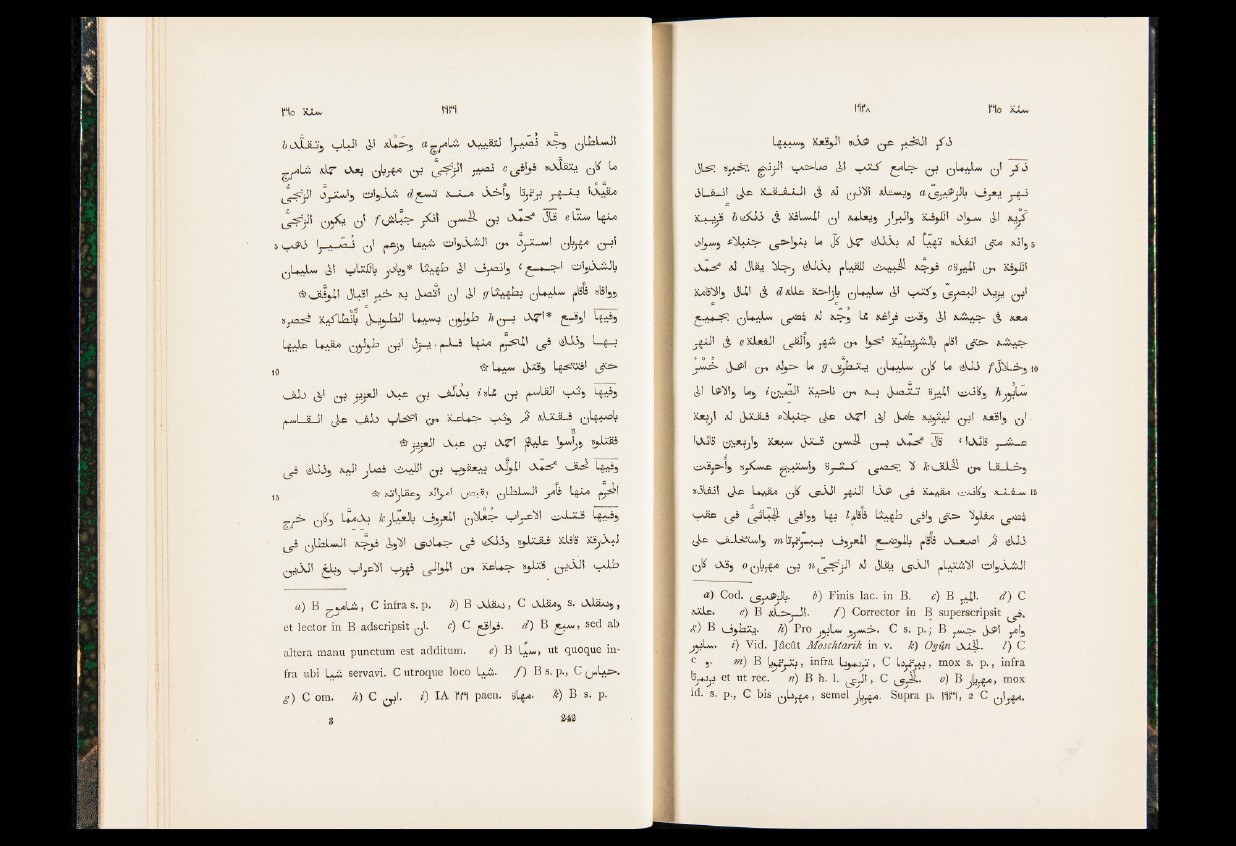 سنة ٢٦٥ ١٩٣٨
ذكر الخبر عن هذه الوقعة وسببها
ذكر ان سليمان بن جامع كتب الى صاحب الزنج يخبره بحال
نهر يعرف بالزهيرى a ويسئله الاذن له فى النفقة على انفاذ
كريه الى سواد الكوفة والبرار ويعلمه ان المسافة فى ذلك b قريبة
5 وانه متى انفذه تهيّأ له بذلك حمل كل ما بنواحى جنبلاء وسواد
الكوفة من الميرة c فوجّه الخبيث للقيام بذلك رجلا يقال له محمّد
ابن يزيد البصرى وكتب الى سليمان بازاحة علله d فى المال والاقامة
معه فى جيشه الى وقت فراغه مما وُجّه له فمضى سليمان بجميع
جيشه حتى اقام بالشريطيّة نحوا من شهر وألقى الفعلة e فى النهر
10 وخلال f ذلك ما كان سليمان يتطرّق g ما حوله من اهل خُسْرُ
سابُور h وكانت الميرة تتّصل به من ناحية الصّين i وما والاها الى
ان واقعه ابن ليثويه عامل ابى احمد على جنبلاء فقتل له اربعة
عشر قائدا؛ قال محمّد بن الحسن قتل سبعة واربعين قائدا
وخلقا من الخلق k لا يحصى كثرة واستبيح عسكره وأحرقت
15 سفنه وكانت مقيمة فى هذا النهر الذى كان مقيما على انفاذه
فمضى مفلولا حتى وافى طهيثا فاقام l بها ووافى الجُبّائى فى عقب
ذلك ثم اصعد فاقام بالموضع المعروف ببرتمرتا m واستخلف على
الشذوات الاشتيام الذى يقال له الزنجى n بن مهربان o وقد كان
a) Cod. بالزهرى. b) Finis lac. in B. c) B المير. d) C
علته. e) B الرحله. f) Corrector in B superscripsit فى.
g) B يتطوف. h) Pro خسرو سابور. C s. p.; B وامر اهل جسر
سابور. i) Vid. Jâcût Moschtarik in v. k) Ogûn الجند. l) C
c و. m) B , infra , C , mox s. p., infra
et ut rec. n) B h. l. , C . o) B مهربار, mox
id. s. p., C bis مهربان, semel مهربار. Supra p. ١٩٢٦, 2 C مهران.
١٩٣٩ سنة ٢٦٥
السلطان وجّه نُصَيرا لتقييد شامرج a وحَمْله الى الباب وتقلّد b
ما كان يتقلّده فوافى c نصير الزنجىّ بن مهربان بعد حمله شامرج
مقيّدا بنهر برتمرتا وأخذ منه تسع d شذوات واستردّ الزنجىّ
منها ستّا e قال محمّد بن الحسن انكر جبّاش f ان يكون الزنجىّ
5 ابن مهربان استردّ من الشذوات شيئا وزعم ان نُصَيرا ذهب
بالشذوات اجمع؛ وانصرف الى طهيثا *وبادر بالكتاب الى سليمان
ووافاه فاقام سليمان بطهيثا g الى ان اتّصل به خبر اقبال الموفّق ۞
وفيها اوقع *احمد بن h طولون بسيما الطويل بأَنْطاكية فحصره
بها وذلك فى المحرّم منها فلم يزل ابن طولون مقيما عليها
10 حتى افتتحها وقتل سيما ۞
وفيها وثب القاسم بن مماه i بدُلَف بن عبد العزيز بن ابى دلف
باصبهان فقتله ثم وثب جماعة من اصحاب دلف على القاسم
فقتلوه ورأسوا عليهم احمد بن عبد العزيز ۞
وفيها لحق محمّد المولّد بيعقوب بن الليث فصار اليه وذلك فى
15 المحرّم منها فأمر السلطان بقبض امواله وعقاراته ۞
وفيها قتلت الاعراب جُعْلان المعروف بالعَيّار k بدِمِمّا وكان خرج
لبذرقة قافلة فقتلوه وذلك فى جمادى الاولى فوجّه السلطان فى
طلب الذين قتلوه جماعة من الموالى فهرب الاعراب وبلغ الذين
a) B شامرج, C infra s. p. b) B , C s. ,
et lector in B adscripsit ان. c) C فواقع. d) B سبع, sed ab
altera manu punctum est additum. e) B شيئا, ut quoque in-
fra ubi شيئا servavi. C utroque loco شيئا. f) B s. p., C .
g) C om. h) C ابن. i) IA ٢٢٦ paen. مهاة. k) B s. p.
3 242